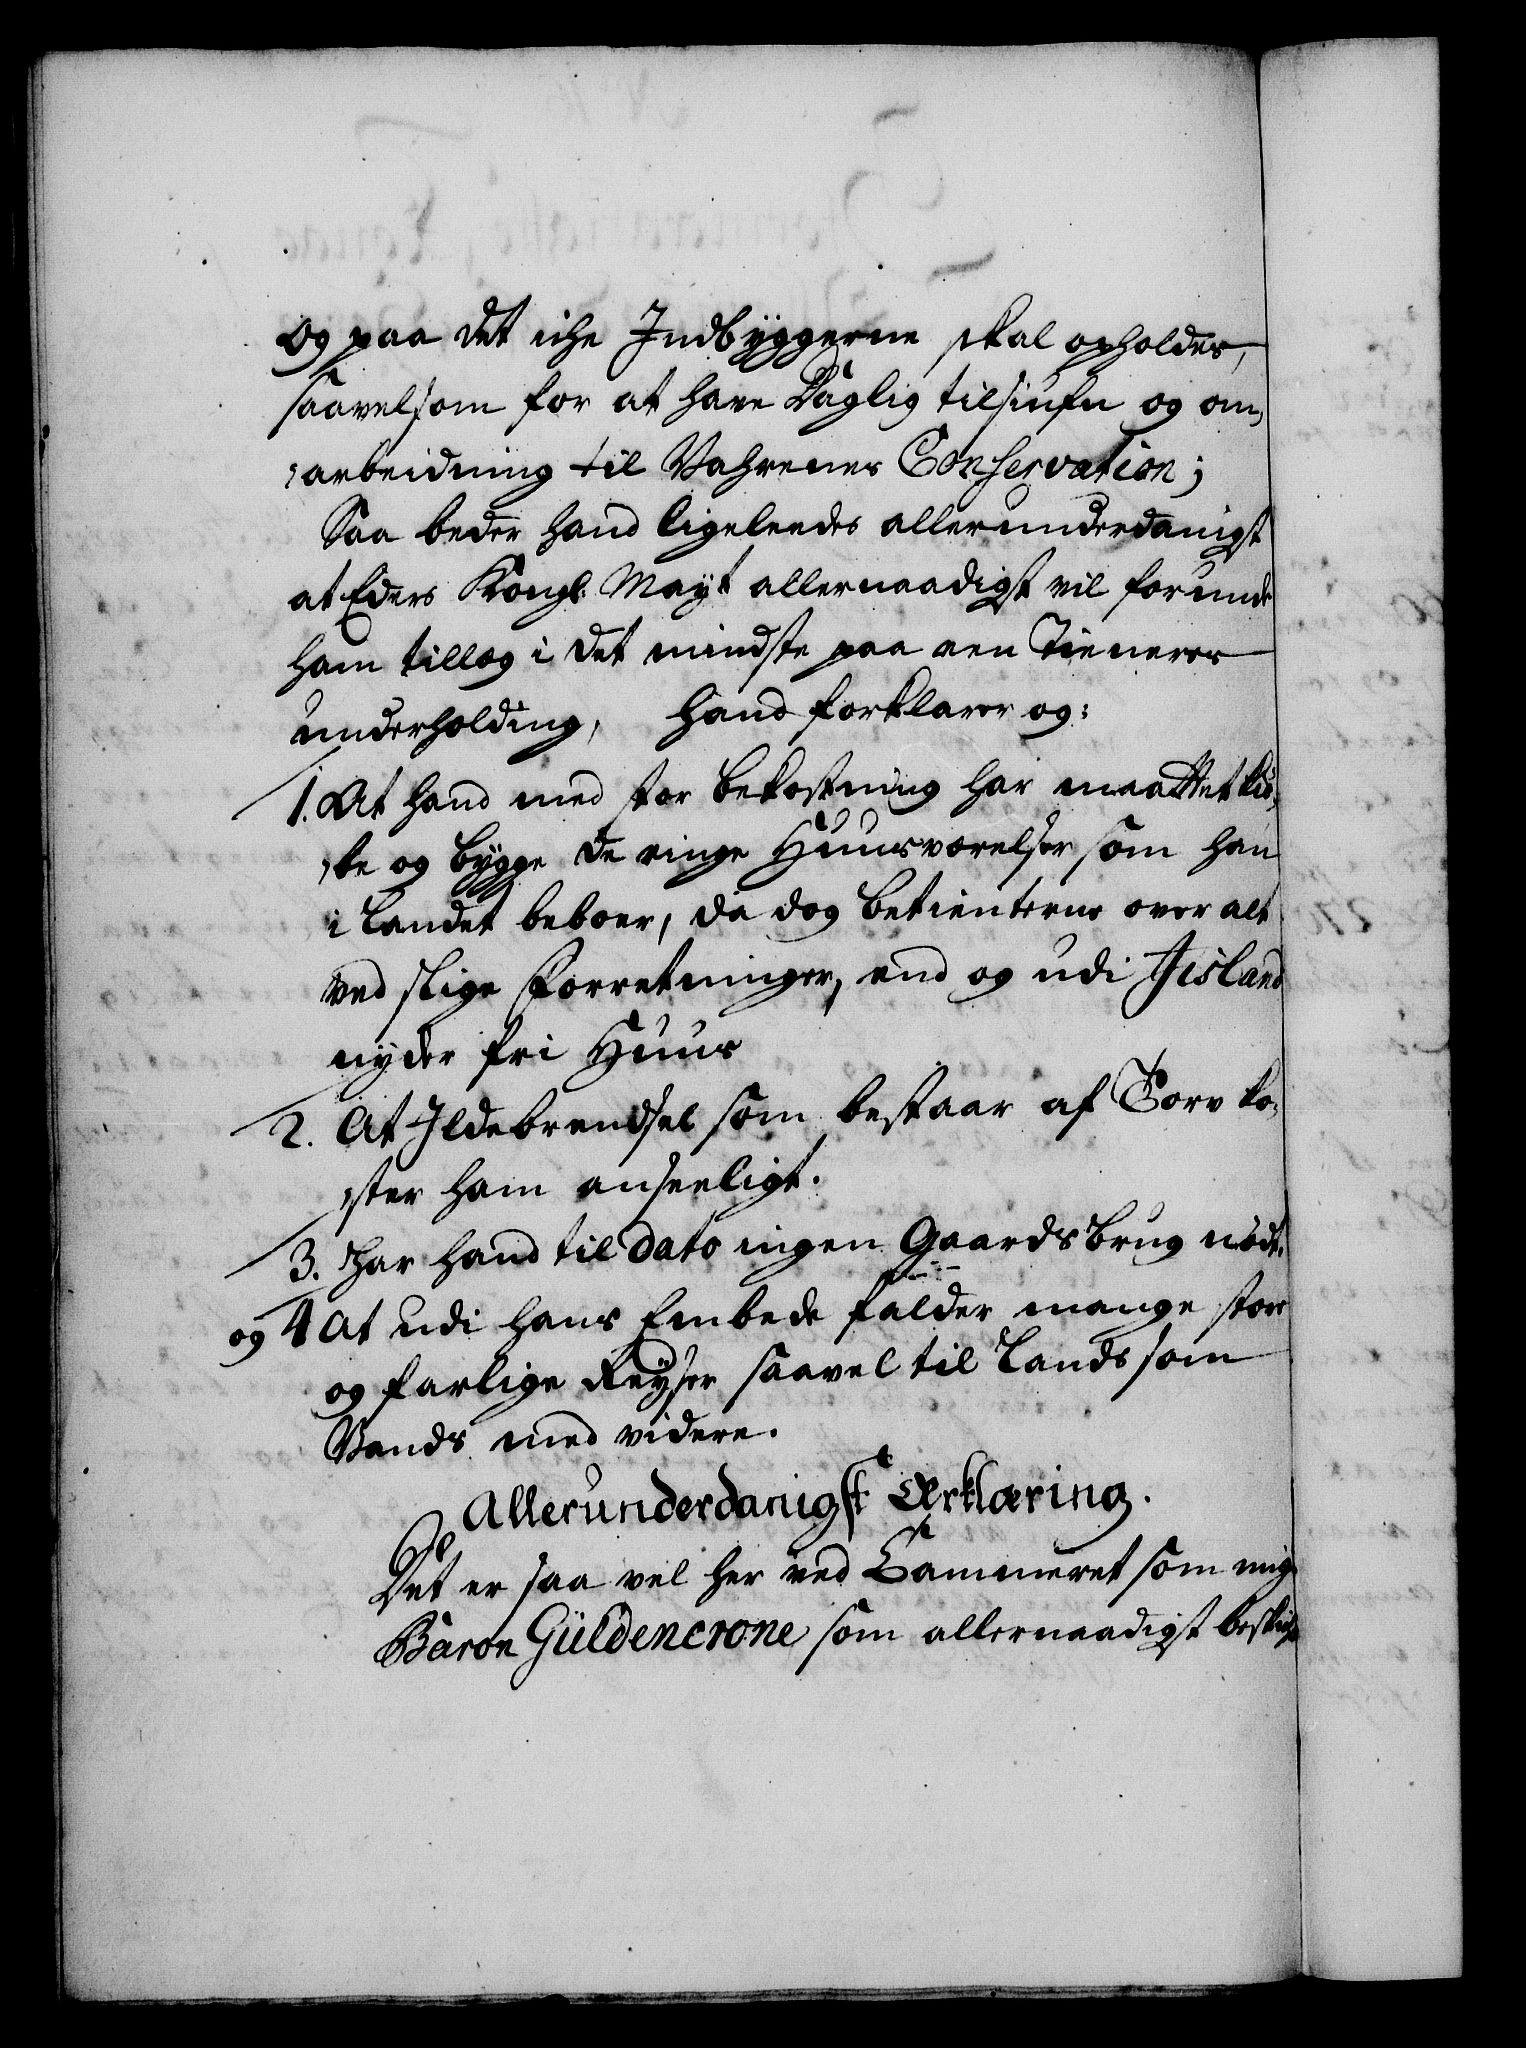 Og paa det iche Indbyggerne skal opholdes,
saavelsom for at have Daglig tilsiufn og om,
,arbeidning til Vahrenes Conservation;
Saa beder hand ligeleedes allerunderdanigst
at Eders Kongl: Mayt allernaadigst vil forunde
ham tillog i det mindste paa een Tieneres
underholding, hand forklarer og:
1. At hand med stor bekostning har maattet kiö,
,be og bygge de ringe Huusværelser som han
i Landet beboer, da dog betienterne over alt
ved slige Forretninger, end og udi Iisland
nyder fri Huus
2. At Ildebrendsel som bestaar af Torv ko,
,ster ham anseeligt.
3. Har hand til dato ingen Gaards brug nödt.
og 4 At udi hans Embede falder mange store
og farlige Reyser saavel til Lands som
Vands med videre.
Allerunderdanigst Erklæring.
Det er saa vel her ved Cammeret som mig
Baron Güldencrone som allernaadigst beskik